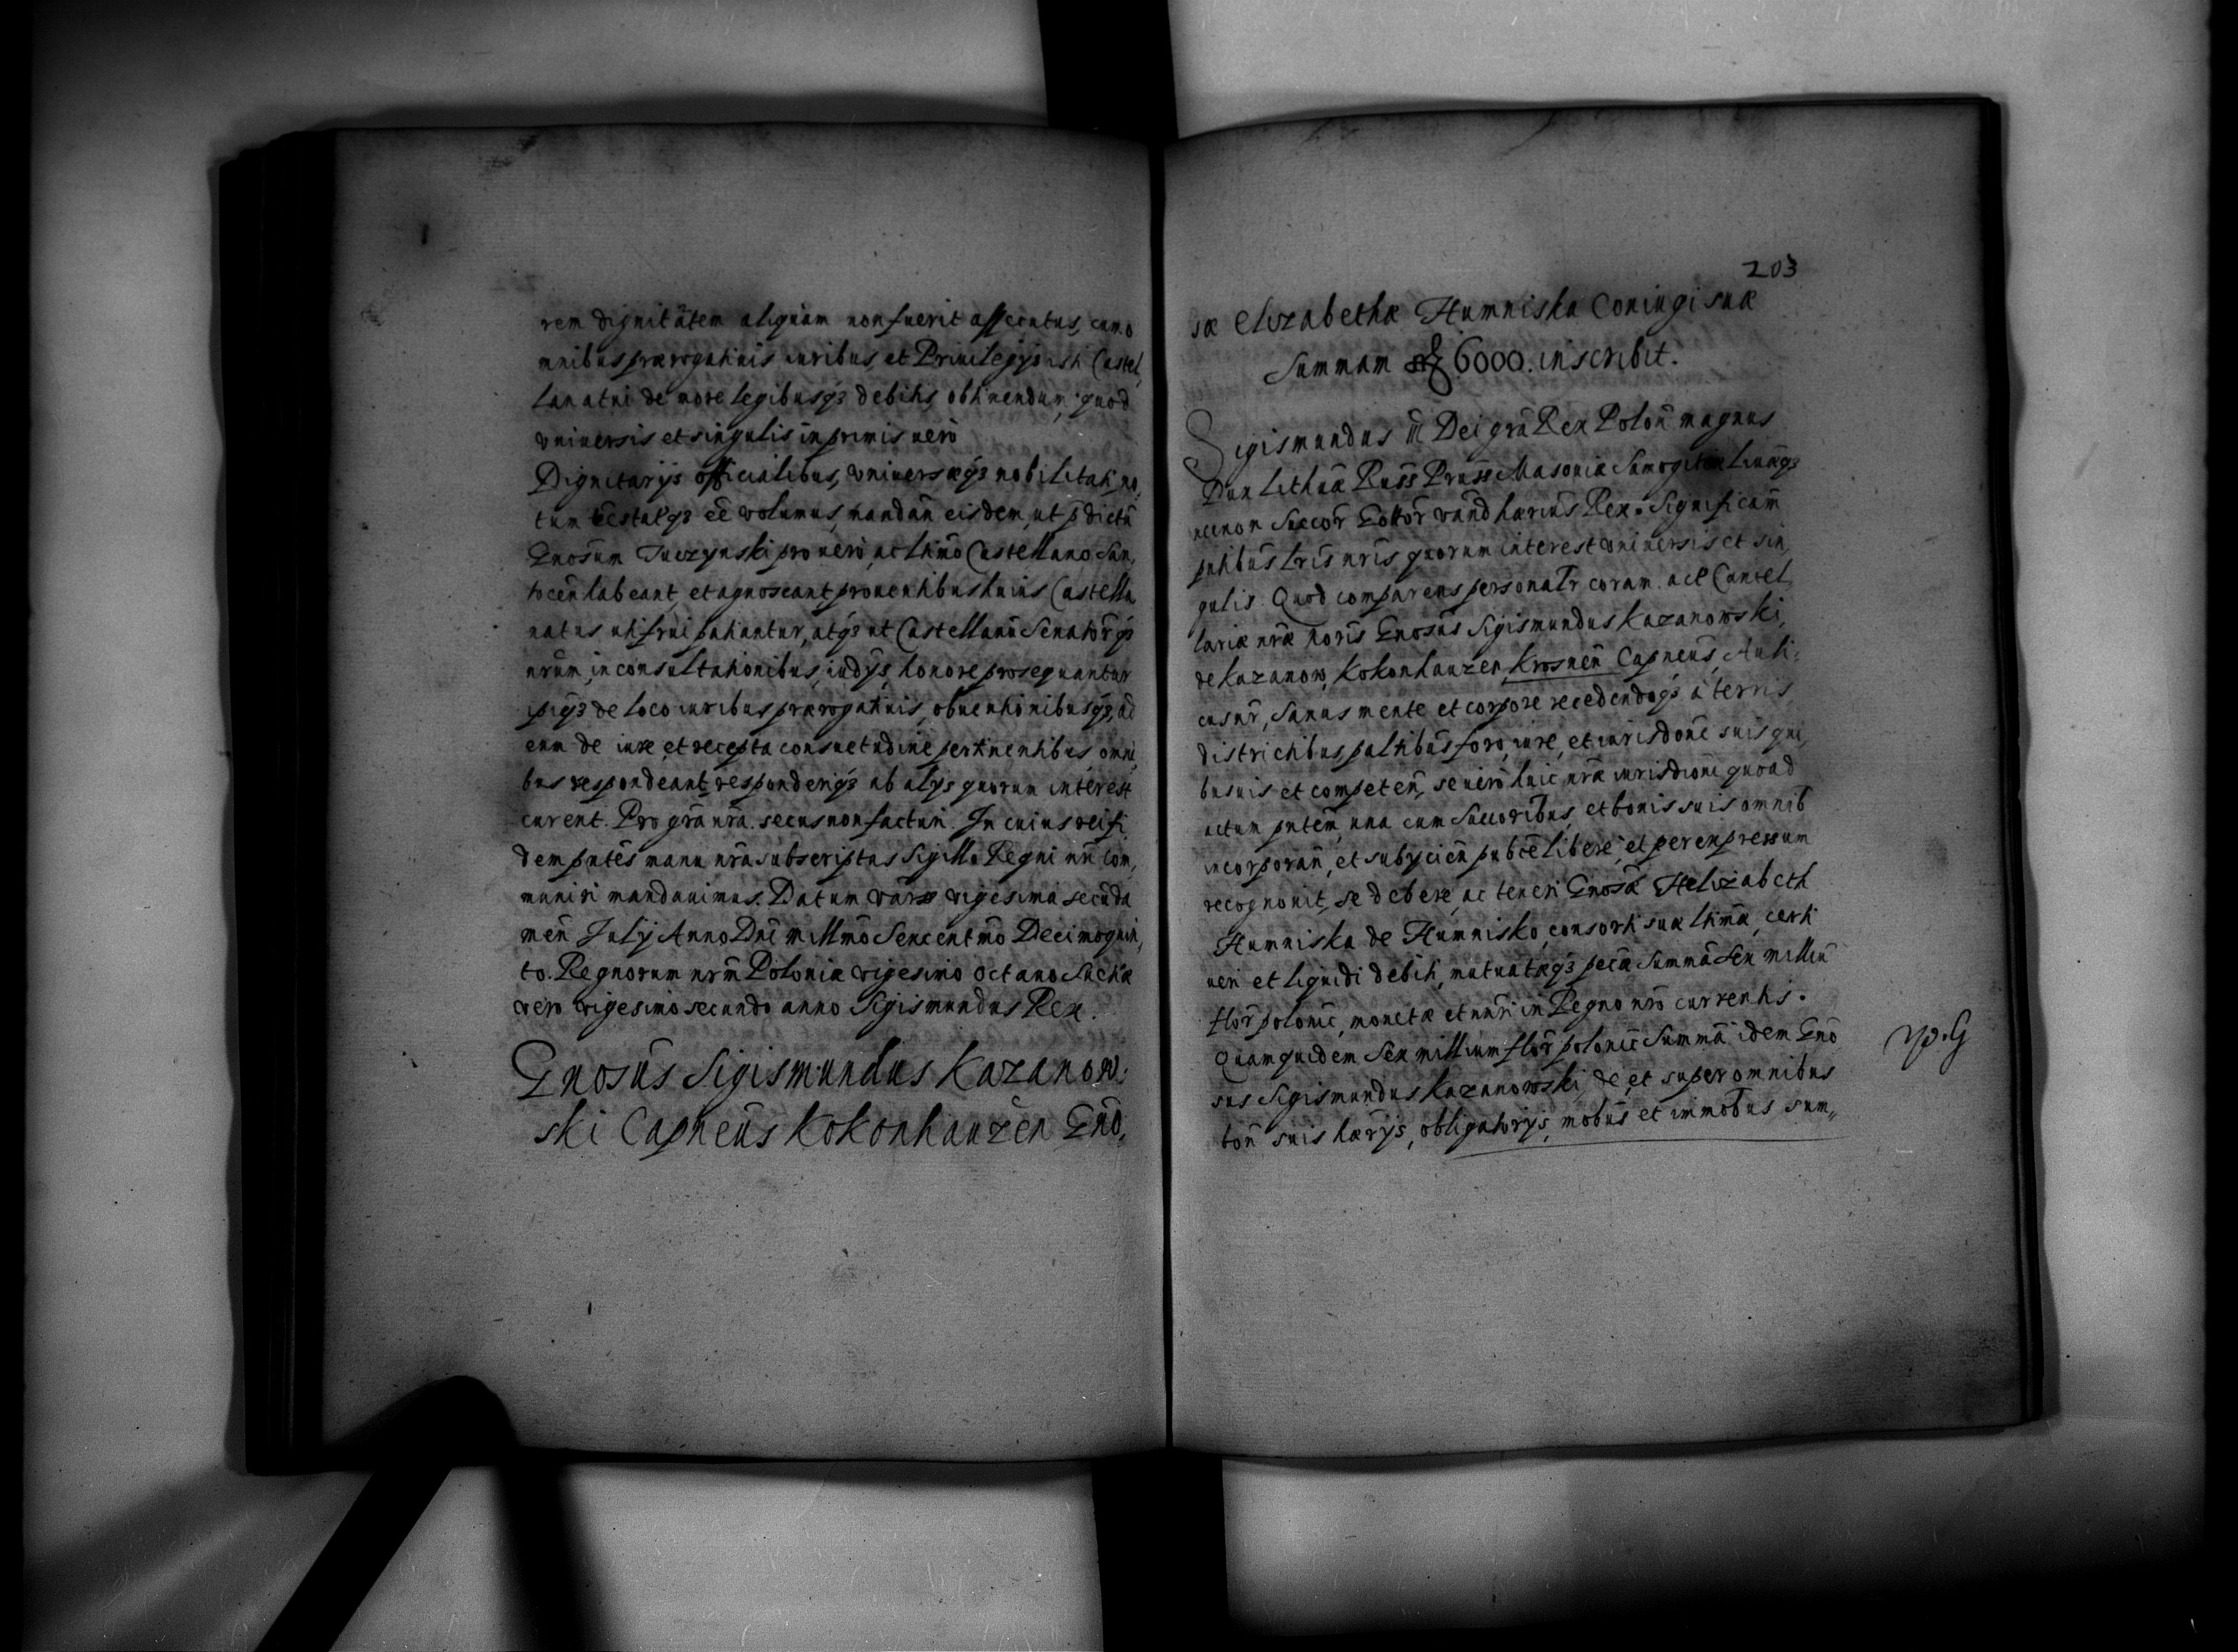 rem dignitatem aliquam non fuerit assecutus, cum o
mnibus prærogatiuis iuribus, et Priuilegijs isti Castel,
lanatui de more legibusq3 debitis, obtinendum, quod
vniuersis et singulis in primis uero
Dignitarijs officialibus, vniuersæq3 nobilitati no,
tum testatq3 eē volumus, mandan̄ eisdem, ut p̄dictū
Gnosum Tuczynski pro uero, ac ltimo Castellano San,
tocen̄ habeant, et agnoscant prouentibus huius Castella
natus uti frui patiantur, atq3 ut Castellanū Senatorēq3
nrūm, in consultationibus, iudijs, honore prosequantur
ipiq3 de loco iuribus prærogatiuis, obuentionibusq3, ad
eum de iure, et recepta consuetudine pertinentibus omni,
bus respondeant, responderiq3 ab alijs quorum interest
curent. Pro grā nrā. secus non facturi. In cuius rei fi
dem pn̄tes manu nrā subscriptas Sigillo Regni nr̄i com,
muniri mandauimus. Datum vars vigesima secūda
men̄ Julij Anno Dn̄i millm̄o Sexcentm̄o Decimoquin,
to. Regnorum nrm̄ Poloniæ vigesimo octauo Sueciæ
vero vigesimo secundo anno Sigismundus Rex.
Gnosūs Sigismundus Kazanow:
ski Capneūs Kokonhauzēn Gnō,
203
sæ Elizabethæ Humniska Coniugi suæ
Summam 6000. inscribit.
Sigismundus III Dei grā Rex Polon̄ magnus
Dux Lithuā Russ̄ Pruss̄ Masouiæ Samogitiæ Liuāq3
necnon Suecor̄ Gottor̄ vand̄ hæriūs Rex. Significam̄
pn̄tibūs lris̄ nris̄ quorum interest vniuersis et sin,
gulis. Quod comparens personalr̄ coram actis Cancel
lariæ nrǣ noris̄ Gnosūs Sigismundus Kazanowski,
de Kazanow, Kokonhauzen, Krosnēn Capneūs, Auli:
cus nr̄, Sanus mente et corpore recedendoq3 a terris
districtibus palatibūs foro, iure, et iurisdonē suis qui,
busuis et competen̄, se uero huic nrǣ iurisdioni quoad
actum pn̄tem, una cum Succoribus, et bonis suis omnib
incorporan̄, et subijcien̄ pubcē libere, et per expressum
recognouit, se debere, ac teneri Gnosǣ Helizabeth
Humniska de Humnisko, consorti suæ ltimǣ, certi
ueri et liquidi debiti, mutuatæq3 pecǣ Summā Sex milliū
flor̄ polonic̄, monetæ et nūri in Regno nrō currentis.
Quam quidem Sex millium flor̄ polonic̄ Summā idem Gnō
sus Sigismundus Kazanowski, de, et super omnibus
bon̄ suis hærijs, obligatorijs, mobūs et immobus sum,,